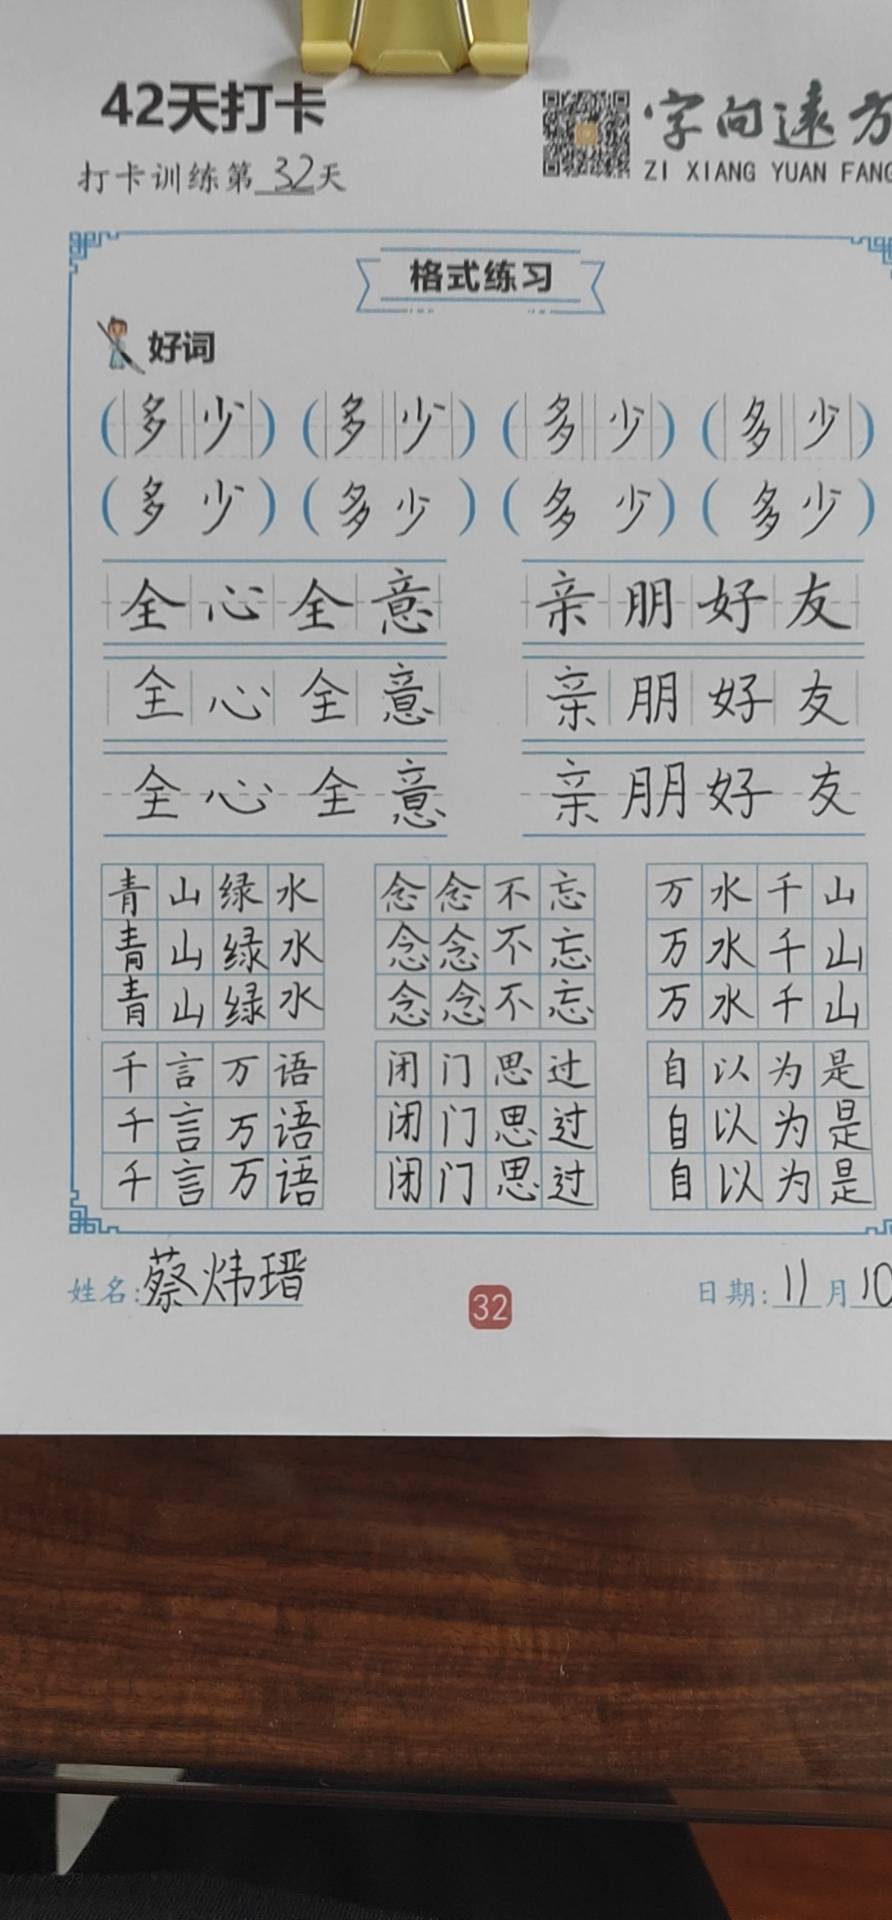 42天打卡
字向远方
打卡训练第32天
ZI XIANG YUAN FANG
格式练习
好词
(多少) (多少) (多少) (多少)
(多少) (多少) (多少) (多少)
全心全意 亲朋好友
全心全意 亲朋好友
全心全意 亲朋好友
青山绿水 念念不忘 万水千山
青山绿水 念念不忘 万水千山
青山绿水 念念不忘 万水千山
千言万语 闭门思过 自以为是
千言万语 闭门思过 自以为是
千言万语 闭门思过 自以为是
姓名:蔡炜瑨 32 日期:11月10